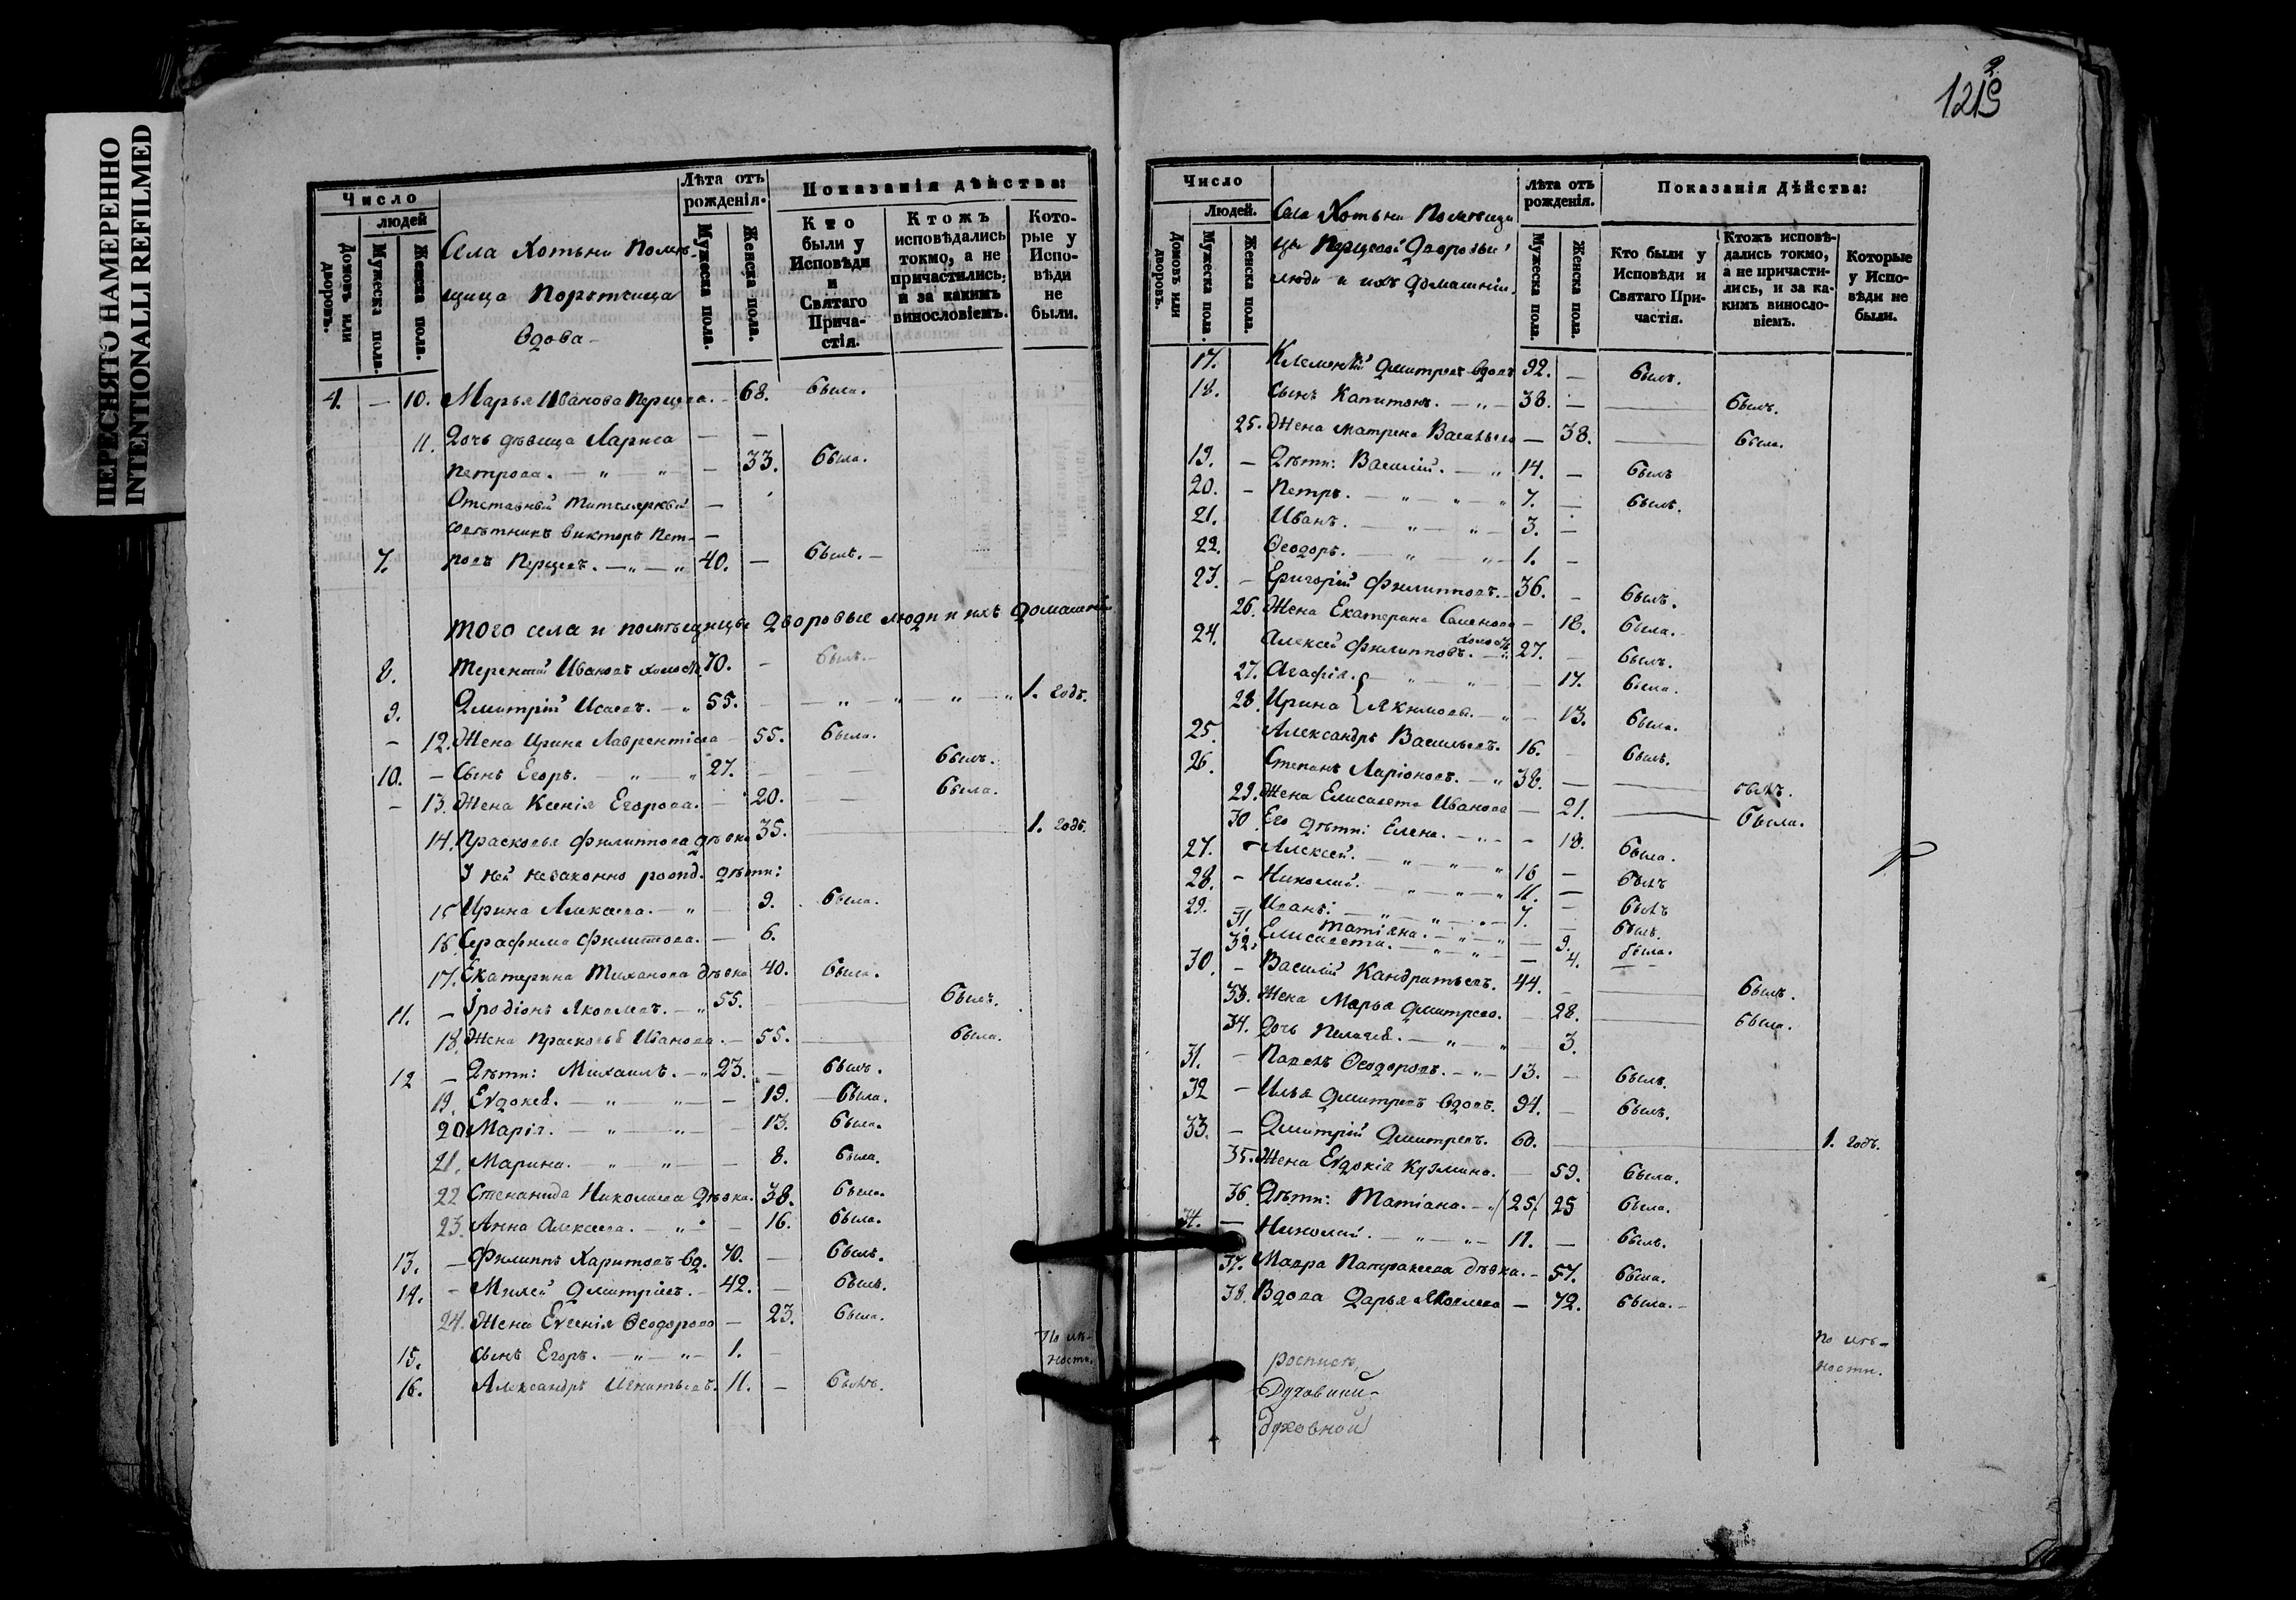 ПЕРЕСНЯТО НАМЕРЕННО
INTENTIONALLI REFILMED
Число
людей
Домовъ или дворовъ.
Мужеска пола.
Женска пола.
Села Хотьни помѣ-
щица
Вдова
Лѣта отъ рожденія.
Мужеска пола.
Женска пола.
Показанія дѣйства:
Кто были у Исповѣди и Святаго Прича-стія.
Ктожъ исповѣдались токмо, а не причастились, и за какимъ винословіемъ.
Кото-рые у Испо-вѣди не были.
4. — 10. Марья Иванова Перцева. — 68. была.
11. Дочь дѣвица Лариса — —
Петрова. — " — " — — 33. была.
Отставный титулярный —
совѣтникъ Викторъ Пет- —
7. ровъ Перцевъ. — " — " 40. — былъ. —
того села и помѣщицы дворовые люди и ихъ домашніи
8. Терентій Ивановъ холостъ 70. — былъ. —
9. Дмитрій Исаевъ. — " 55. — — " — " — " — " 1. годъ.
— 12. Жена Ирина Лаврентіева — 55. была.
10. — Сынъ Егоръ. — " — " 27. — — былъ.
— 13. Жена Ксенія Егорова. — 20. — была.
14. Прасковья Филиппова дѣвка 35. — 1. годъ.
У ней незаконно рожд. дѣти:
15 Ирина Алексеева. — " — 9. была.
16 Серафима Филиппова. — 6.
17. Екатерина Тиханова дѣвка 40. была.
11. — Іродіонъ Яковлевъ. — " 55. — былъ.
18. Жена Прасковья Иванова. — 55. — была.
12 — Дѣти: Михаилъ. — " 23. — былъ.
19. Евдокея. — " — " — — 19. — была.
20 Марія. — " — " — — 13. была.
21. Марина. — " — " — — 8. была.
22 Степанида Николаева дѣвка. 38. была.
23. Анна Алексеева. — " — 16. была.
13. — Филиппъ Харитовъ вд. 70. — былъ.
14. — Дмитріевъ. — 42. — былъ.
24. Жена Евгенія Ѳеодорова — 23. была.
15. Сынъ Егоръ. — " — " — 1. —
16. Александръ Игнатьевъ. 11. — былъ.
Число
Людей.
Домовъ или дворовъ.
Мужеска пола.
Женска пола.
Села Хотьни Помѣщи
цы Перцевой Дворовыи
люди и ихъ домашніи.
Лѣта отъ рожденія.
Мужеска пола.
Женска пола.
Показанія Дѣйства:
Кто были у Исповѣди и Святаго При-частія.
Ктожъ исповѣ-дались токмо, а не причасти-лись, и за ка-кимъ винословіемъ.
Которые у Испо-вѣди не были.
17. Клементій Дмитревъ вдовъ 92. — былъ.
18. Сынъ Капитонъ. — " — 38. — — былъ.
25. Жена Матрена Васильева — 38. — была.
19. — Дѣти: Василій. — " 14. — былъ
20. — Петръ. — " — " — " 7. — былъ.
21. Иванъ. — " — " — 3. —
22. Ѳеодоръ. — " — " — 1. —
23. — Григорій Филипповъ. — 36. — былъ.
26. Жена Екатерина Семенова — 18. была. —
24. Алексей Филипповъ. холостъ 27. — былъ.
27. Агафія. — " — " — — 17. была.
28. Ирина } Якимовы. — " — 13. была.
25. Александръ Васильевъ. 16. — былъ.
26. Степанъ Ларіоновъ. — " 38. — — былъ.
29. Жена Елисавета Иванова — 21. — была.
30. Его дѣти: Елена. — " — — 18. была.
27. — Алексей. — " — " — " 16 — былъ
28. — Николай. — " — " — " 11. — былъ
29. — Иванъ. — " — " — " — 7. — былъ.
31. Татіяна. — " — " — — 9. была.
32. Елисавета. — " — " — 4. —
30. — Василій Кандратьевъ. 44. — — былъ.
33. Жена Марья Дмитрева. — 28. — была.
34. Дочь Пелагея. — " — " — 3.
31. — Павелъ Ѳеодоровъ. — " — 13. — былъ.
32 — Илья Дмитревъ вдовъ. 94. — былъ.
33. — Дмитрій Дмитревъ. 60. — — 1. годъ.
35. Жена Евдокія Кузмина. — 59. была.
36 Дѣти: Татіана. — " (25) 25 была.
34. — Николай. — " — " — 11. — былъ.
37. Мавра дѣвка. — 57. была.
38. Вдова Дарья Яковлева — 72. была. —
духовной